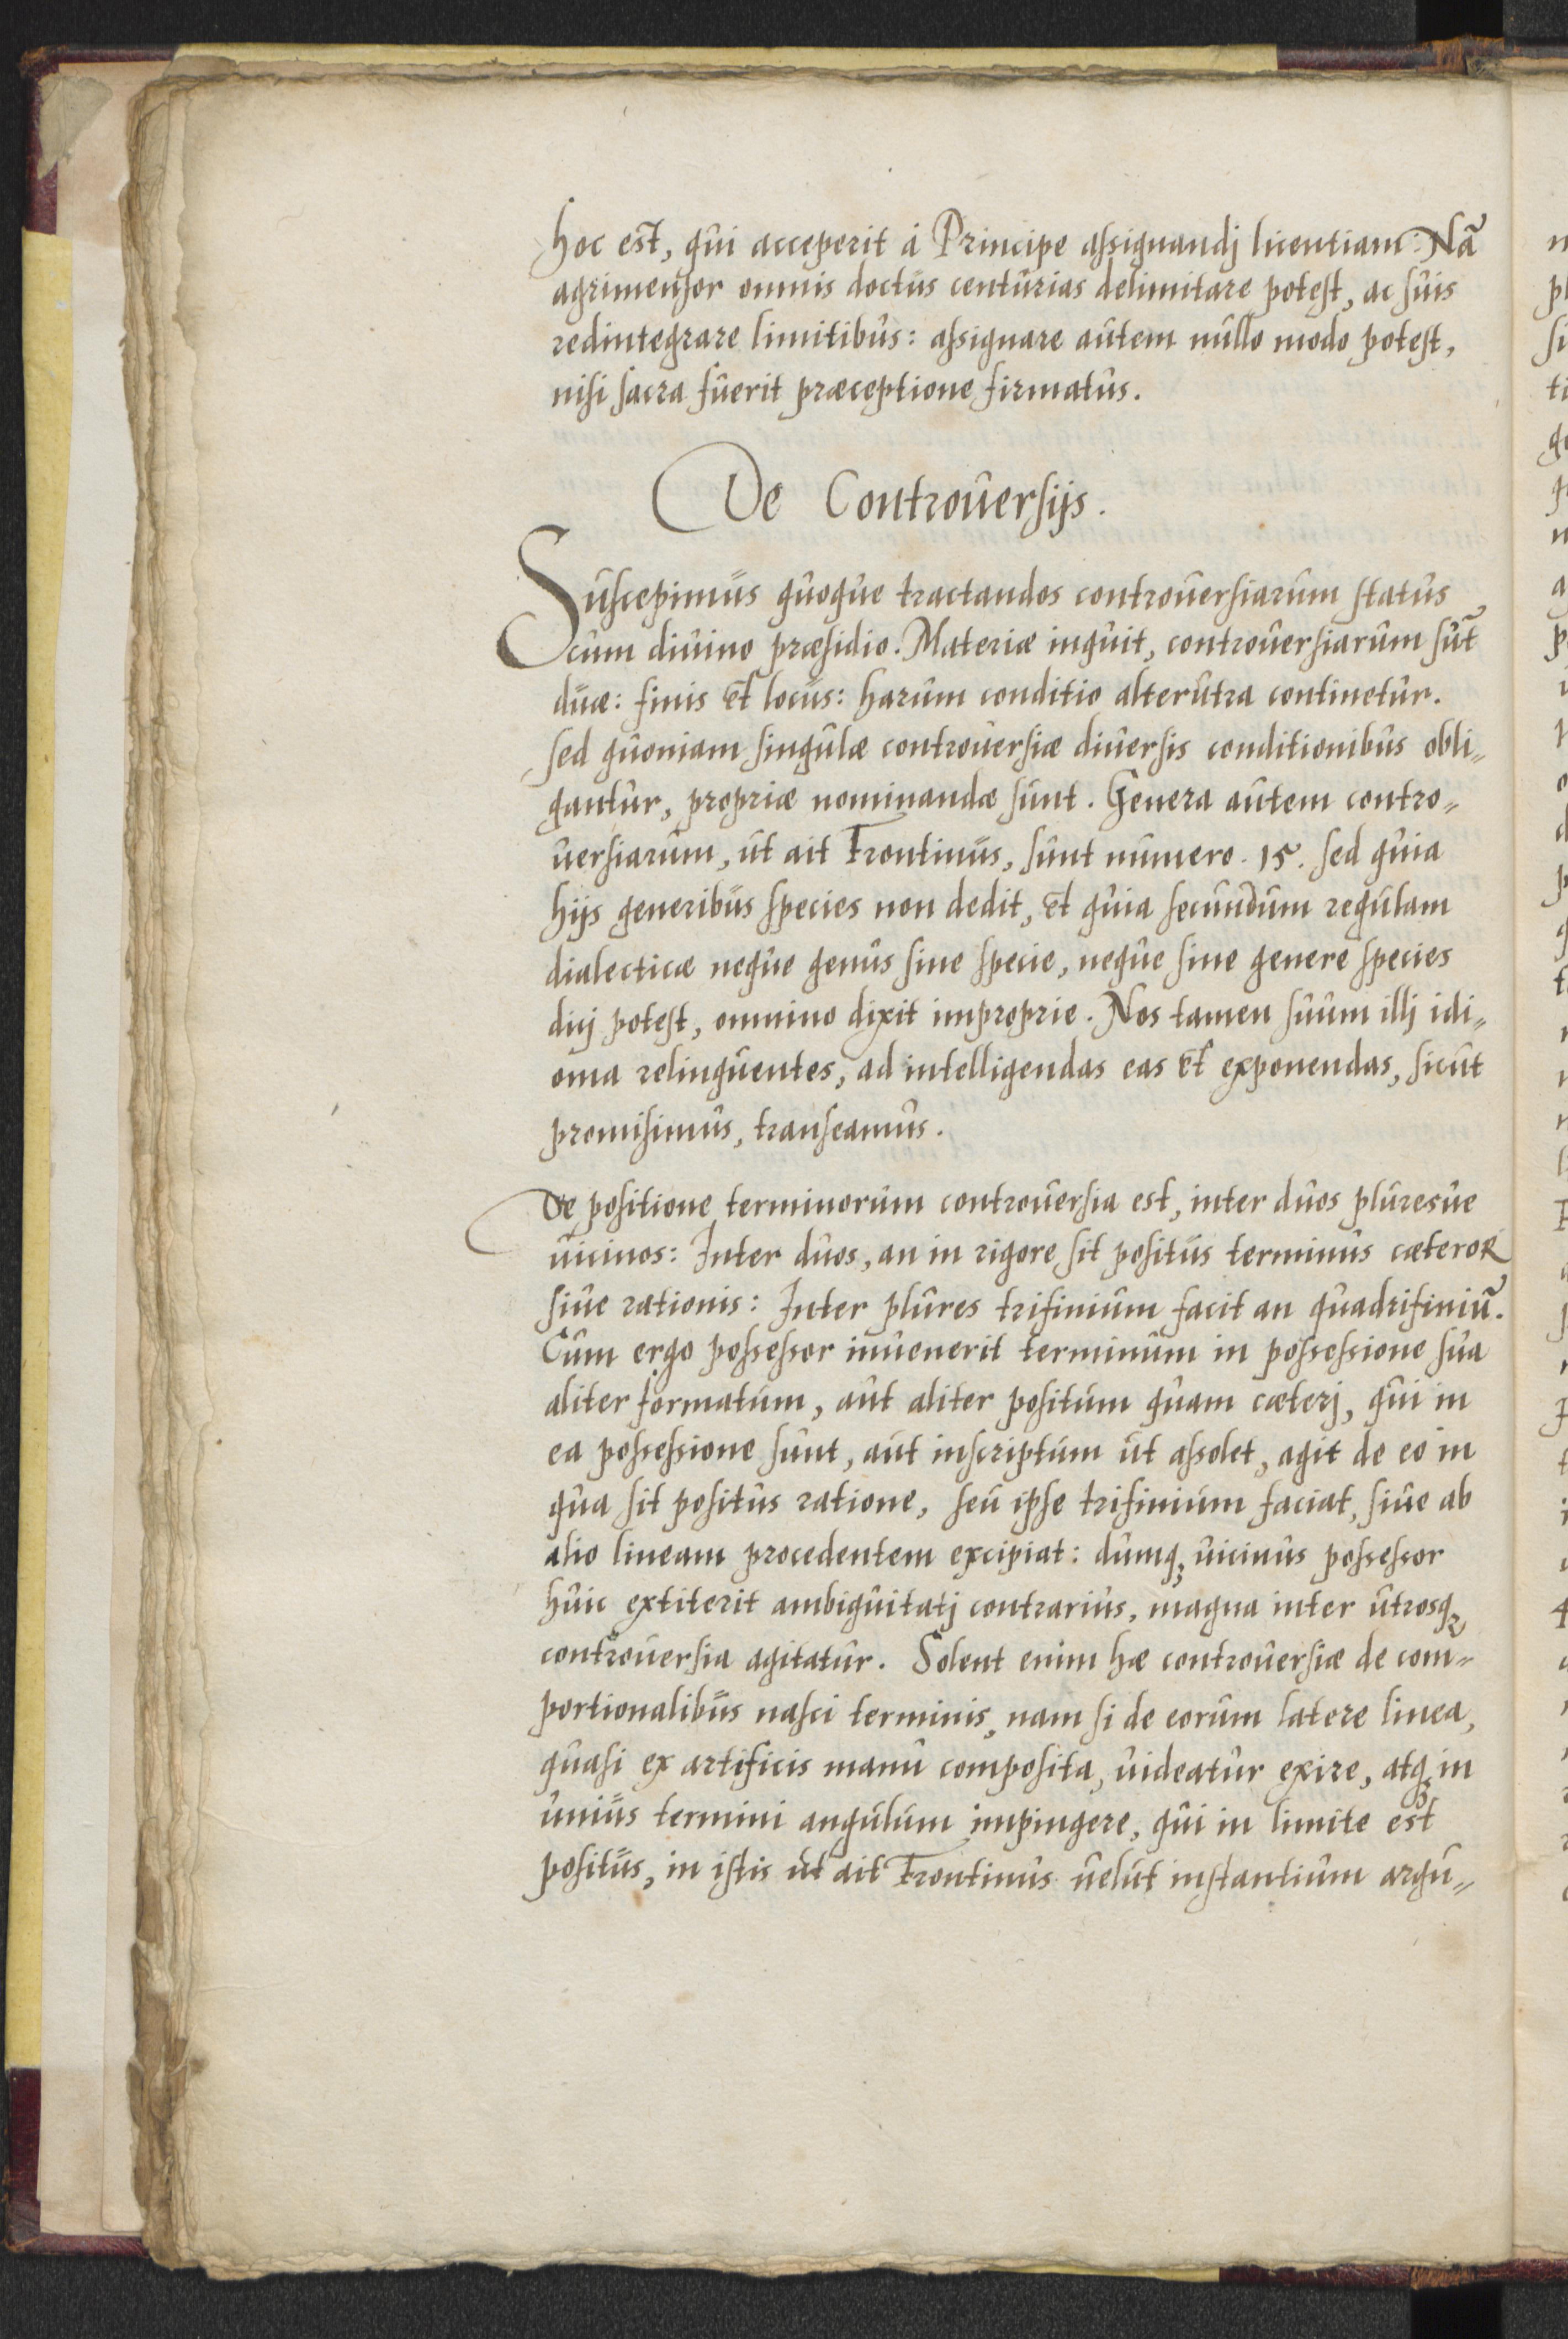 hoc est, qui acceperit á Principe assignandj licentiam. Nā
agrimensor omnis doctus centurias delimitare potest, ac suis
redintegrare limitibus: assignare autem nullo modo potest,
nisi sacra fuerit præceptione firmatus.
De Controuersijs.
Suscepimus quoque tractandos controuersiarum status
cum diuino præsidio. Materiæ inquit, controuersiarum sūt
duæ: finis et locus: harum conditio alterutra continetur.
sed quoniam singulæ controuersiæ diuersis conditionibus obli„
gantur, propriæ nominandæ sunt. Genera autem contro„
uersiarum, ut ait Frontinus, sunt numero. 15. sed quia
hijs generibus species non dedit, et quia secundum regulam
dialecticæ neque genus sine specie, neque sine genere species
dicj potest, omnino dixit improprie. Nos tamen suum illj idi„
oma relinquentes, ad intelligendas eas et exponendas, sicut
promisimus, transeamus.
De positione terminorum controuersia est, inter duos pluresue
uicinos: Inter duos, an in rigore sit positus terminus cæteroꝝ
siue rationis: Inter plures trifinium facit an quadrifiniū.
Cum ergo possessor inuenerit terminum in possessione sua
aliter formatum, aut aliter positum quam cæterj, qui in
ea possessione sunt, aut inscriptum ut assolet, agit de eo in
qua sit positus ratione, seu ipse trifinium faciat, siue ab
alio lineam procedentem excipiat: dumqꝫ uicinus possessor
huic extiterit ambiguitatj contrarius, magna inter utrosqꝫ
controuersia agitatur. Solent enim hæ controuersiæ de com„
portionalibus nasci terminis, nam si de eorum latere linea,
quasi ex artificis manu composita, uideatur exire, atqꝫ in
unius termini angulum impingere, qui in limite est
positus, in istis ut ait Frontinus uelut instantium argu„